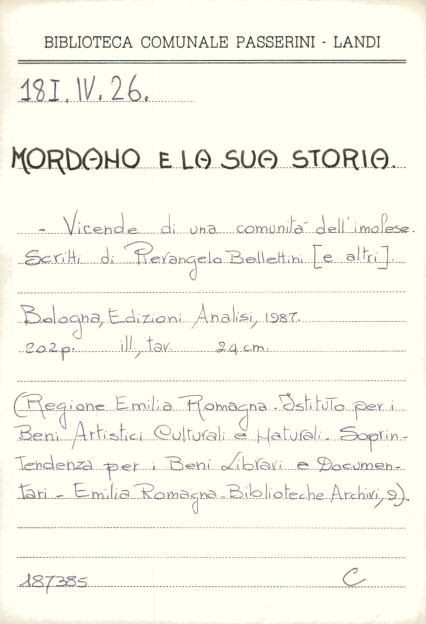 BIBLIOTECA COMUNALE PASSERINI - LANDI
18I. IV. 26.
MORDANO E LA SUA STORIA.
- Vicende di una comunità dell'imolese.
Scritti di Pierangelo Bellettini [e altri].
Bologna, Edizioni Analisi, 1987.
202p. ill., tav. 24 cm.
(Regione Emilia Romagna. Istituto per i
Beni Artistici Culturali e Naturali. Soprin-
tendenza per i Beni Librari e Documen-
tari - Emilia Romagna. Biblioteche Archivi, 2).
187385 C